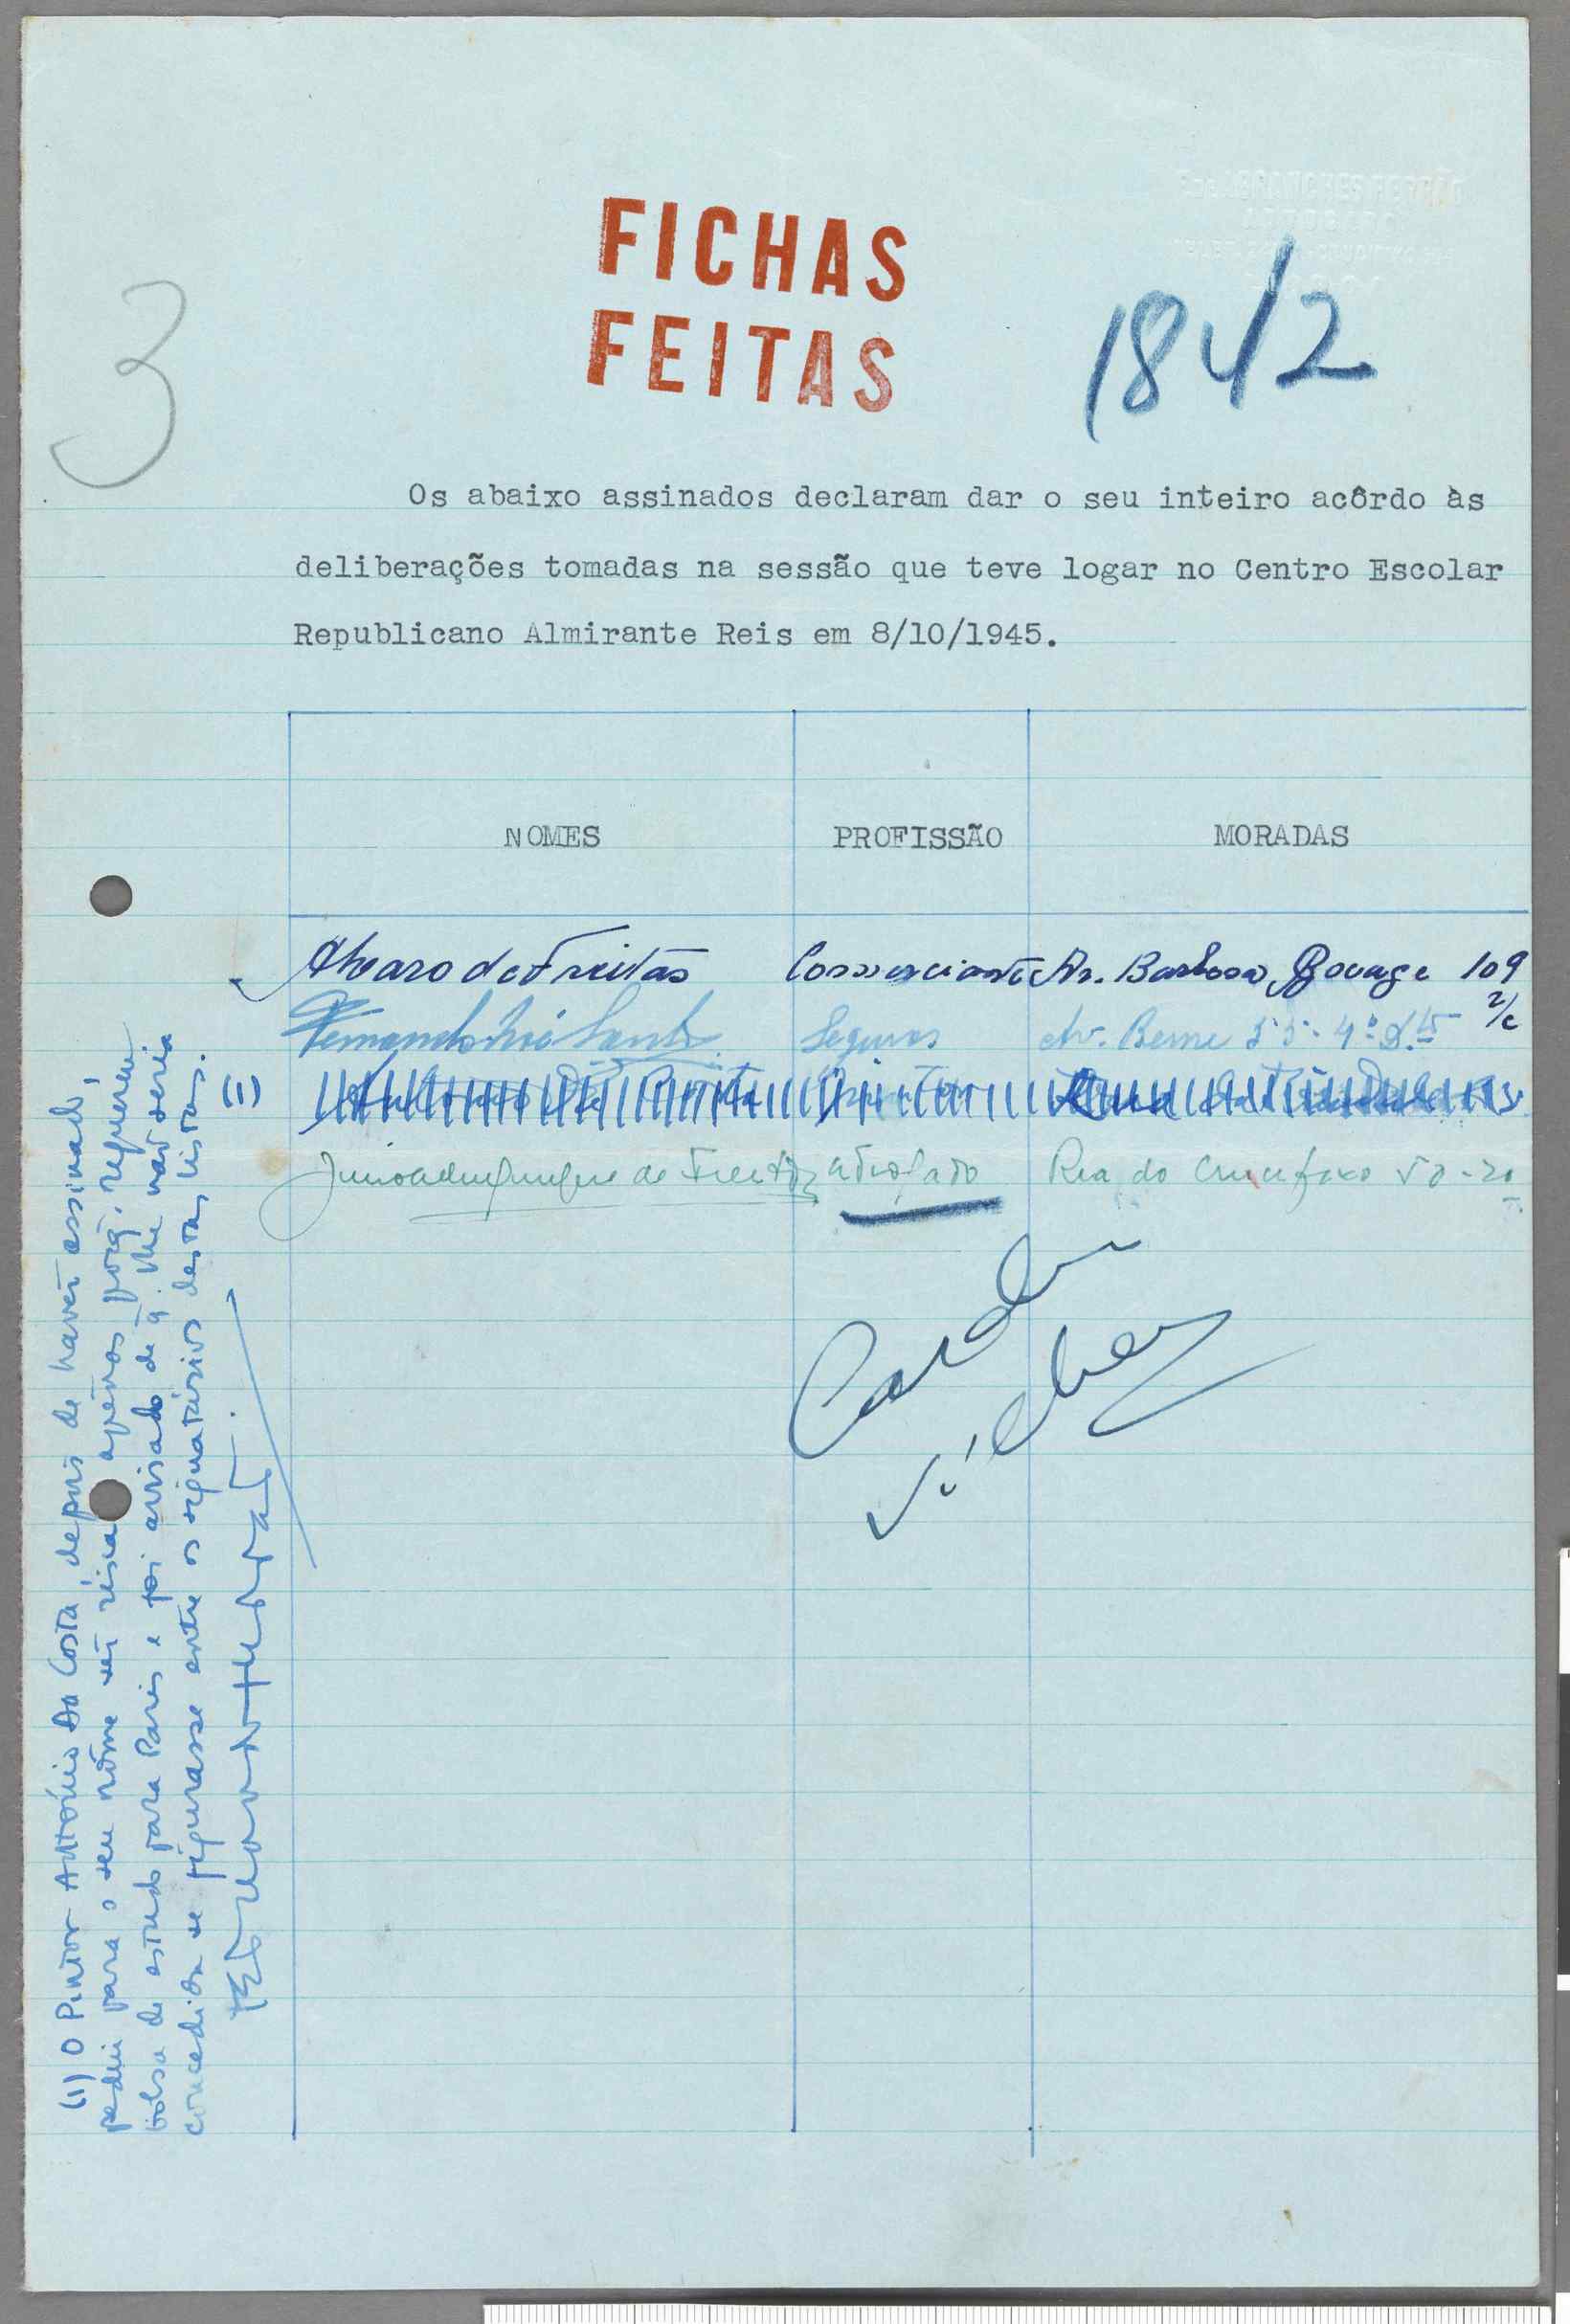 3
FICHAS
FEITAS
1842
Os abaixo assinados declaram dar o seu inteiro acôrdo às
deliberações tomadas na sessão que teve logar no Centro Escolar
Republicano Almirante Reis em 8/10/1945.
NOMES PROFISSÃO MORADAS
Alvaro de Freitas Commerciante Av. Barbosa Bocage 109
2/c
Seguros Av. Berne
(1)
de Freitas advogado Rua do Crucifixo 50-2º
(1) O Pintor António Da Costa, depois de haver assinado,
pediu para o seu nôme ser risca apenas porq. requereu
bolsa de estudo para Paris e foi avisado de q. lhe não seria
concedida se figurasse entre os signatários destas listas.